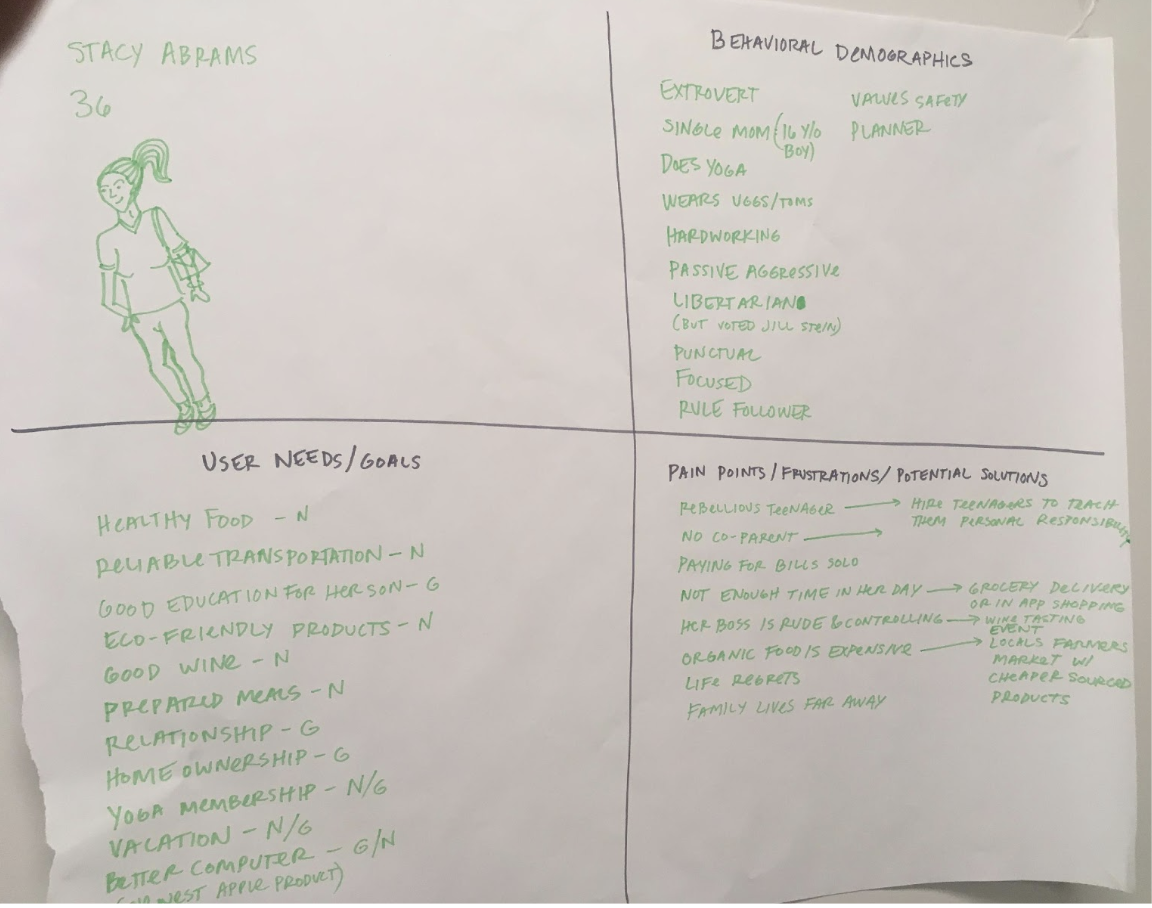 STACY ABRAMS
36
BEHAVIORAL DEMOGRAPHICS
EXTROVERT
SINGLE MOM (16 Y/O
BOY)
DOES YOGA
WEARS UGGS/TOMS
HARDWORKING
PASSIVE AGGRESSIVE
LIBERTARIAN
(BUT VOTED JILL STEIN)
PUNCTUAL
FOCUSED
RULE FOLLOWER
VALUES SAFETY
PLANNER
USER NEEDS/GOALS
HEALTHY FOOD - N
RELIABLE TRANSPORTATION - N
GOOD EDUCATION FOR HER SON - G
ECO-FRIENDLY PRODUCTS - N
GOOD WINE - N
PREPARED MEALS - N
RELATIONSHIP - G
HOME OWNERSHIP - G
YOGA MEMBERSHIP - N/G
VACATION - N/G
BETTER COMPUTER - G/N
APPLE PRODUCT)
PAIN POINTS/FRUSTRATIONS/POTENTIAL SOLUTIONS
REBELLIOUS TEENAGER → HIRE TEENAGERS TO TEACH
THEM PERSONAL RESPONSIBILITY
NO CO-PARENT →
PAYING FOR BILLS SOLO
NOT ENOUGH TIME IN HER DAY → GROCERY DELIVERY
OR IN APP SHOPPING
HER BOSS IS RUDE & CONTROLLING → WINE TASTING
EVENT
ORGANIC FOOD IS EXPENSIVE → LOCALS FARMERS
MARKET W/
CHEAPER SOURCED
PRODUCTS
LIFE REGRETS
FAMILY LIVES FAR AWAY